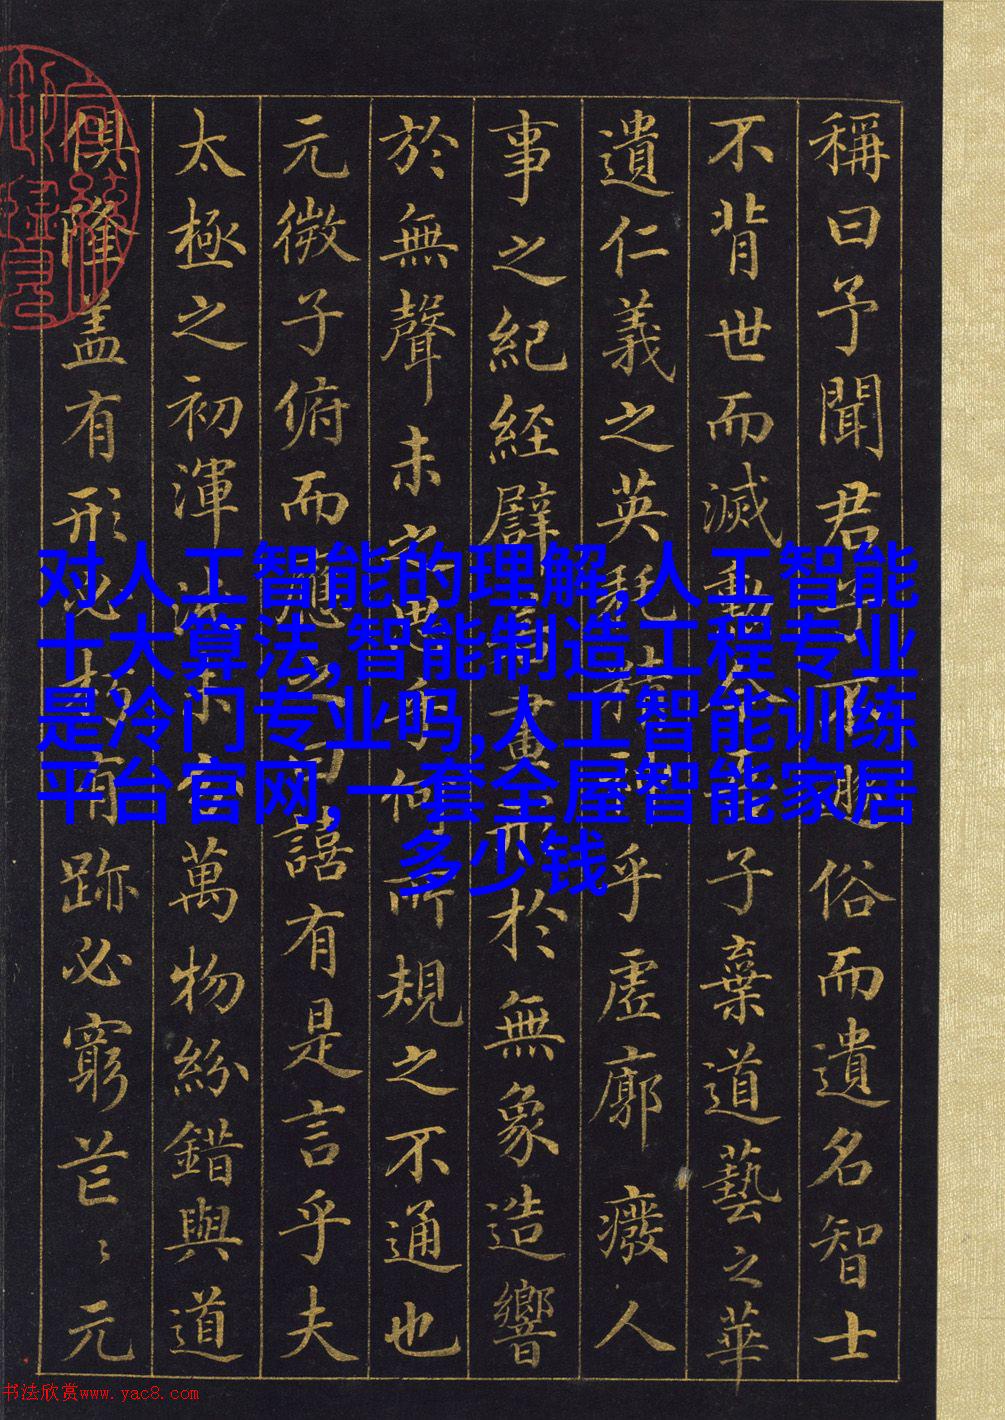 稱曰予聞君不俗而遺名智士
不背世而滅勳今子棄道藝之華
遺仁義之英乎虛廓廢人
事之紀經譬畫形於無象造響
於無聲未何所規之不通也
元微子俯而應之曰譆有是言乎夫
太極之初渾沌未分萬物紛錯與道
俱隆盖有形必朽有跡必窮芒〻元
对人工智能的理解,人工智能
十大算法,智能制造工程专业
是冷门专业吗,人工智能训练
平台官网,一套全屋智能家居
多少钱
书法欣赏www.yac8.com